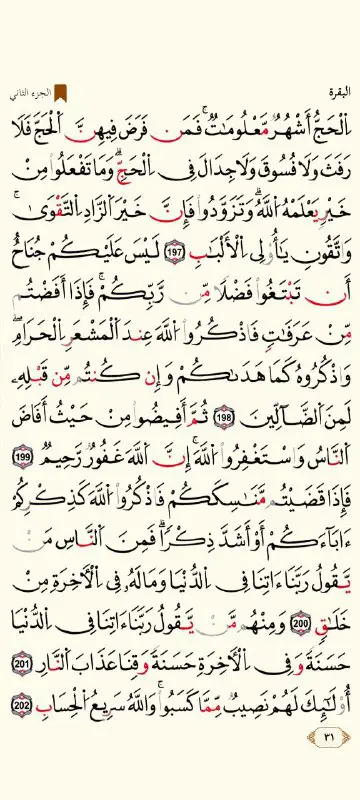 البقرة الجزء الثاني
اِ۬لْحَجُّ أَشْهُرٌ مَّعْلُومَٰتٌۚ فَمَن فَرَضَ فِيهِنَّ اَ۬لْحَجَّ فَلَا
رَفَثَ وَلَا فُسُوقَ وَلَا جِدَالَ فِي اِ۬لْحَجِّۗ وَمَا تَفْعَلُوا۟ مِنْ
خَيْرٍ يَعْلَمْهُ اُ۬للَّهُۗ وَتَزَوَّدُوا۟ فَإِنَّ خَيْرَ اَ۬لزَّادِ اِ۬لتَّقْوَىٰۚ
وَاتَّقُونِ يَٰٓأُو۟لِي اِ۬لْأَلْبَٰبِ 197 لَيْسَ عَلَيْكُمْ جُنَاحٌ
أَن تَبْتَغُوا۟ فَضْلًا مِّن رَّبِّكُمْۚ فَإِذَآ أَفَضْتُم
مِّنْ عَرَفَٰتٍ فَاذْكُرُوا۟ اُ۬للَّهَ عِندَ اَ۬لْمَشْعَرِ اِ۬لْحَرَامِۖ
وَاذْكُرُوهُ كَمَا هَدَىٰكُمْ وَإِن كُنتُم مِّن قَبْلِهِۦ
لَمِنَ اَ۬لضَّآلِّينَ 198 ثُمَّ أَفِيضُوا۟ مِنْ حَيْثُ أَفَاضَ
اَ۬لنَّاسُ وَاسْتَغْفِرُوا۟ اُ۬للَّهَۚ إِنَّ اَ۬للَّهَ غَفُورٌ رَّحِيمٌ 199
فَإِذَا قَضَيْتُم مَّنَٰسِكَكُمْ فَاذْكُرُوا۟ اُ۬للَّهَ كَذِكْرِكُمْ
ءَابَآءَكُمْ أَوْ أَشَدَّ ذِكْرًاۗ فَمِنَ اَ۬لنَّاسِ مَن
يَّقُولُ رَبَّنَآ ءَاتِنَا فِي اِ۬لدُّنْيَا وَمَا لَهُۥ فِي اِ۬لْأٓخِرَةِ مِنْ
خَلَٰقٍ 200 وَمِنْهُم مَّن يَّقُولُ رَبَّنَآ ءَاتِنَا فِي اِ۬لدُّنْيَا
حَسَنَةً وَفِي اِ۬لْأٓخِرَةِ حَسَنَةً وَقِنَا عَذَابَ اَ۬لنَّارِ 201
أُو۟لَٰٓئِكَ لَهُمْ نَصِيبٌ مِّمَّا كَسَبُوا۟ۚ وَاللَّهُ سَرِيعُ اُ۬لْحِسَابِ 202
٣١